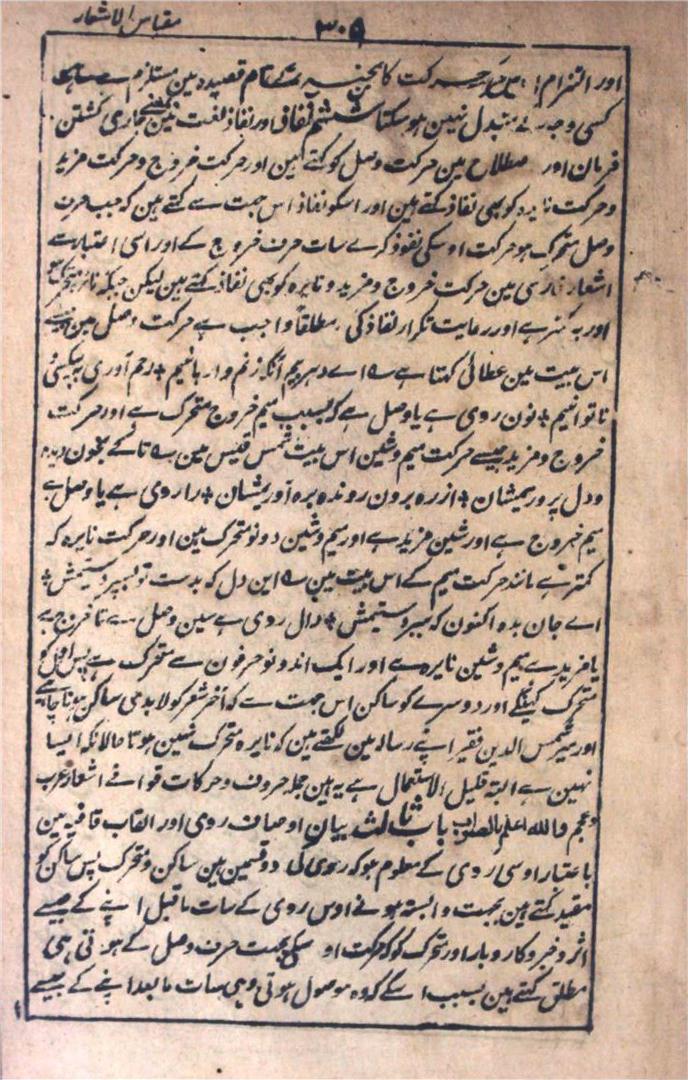 مقیاس الاشعار
۳۰۵
اور التزام حرکت کا بجنسہ تمام قصیدہ مین مستلزم
کسی وجہ سے متبدل نہین ہو سکتا ششم نفاذ اور نفاذ لغت مین بمعنے جاری گشتن
فرمان اور اصطلاح مین حرکت وصل کو کہتے ہین اور حرکت خروج و حرکت مزید
و حرکت نایرہ کو بھی نفاذ کہتے ہین اور اسکو نفاذ اس جہت سے کہتے ہین کہ جب حرف
وصل متحرک ہو حرکت اوسکی نفوذ کرے سات حرف خروج کے اور اسی اعتبار سے
اشعار فارسی مین حرکت خروج و مزید و نایرہ کو بھی نفاذ کہتے ہین لیکن حرکت نایرہ
اور یہ کمتر ہے اور رعایت تکرار نفاذ کی مطلقاً واجب ہے حرکت وصل مین جیسے
اس بیت مین عطائی کہتا ہے اے دہر بیم آنکہ زغم وا رہانیم ٭ رحم آوری بہ بیکسئ
ناتوانیم ٭ نون روی ہے یا وصل ہے کہ بسبب میم خروج متحرک ہے اور حرکت
خروج و مزید جیسے حرکت میم و شین اس بیت شمس قیس مین تا کے بخون دیدہ
و دل پروریمشان ٭ از رہ برون روند و برہ آوریشان ٭ را روی ہے یا وصل ہے
میم خروج ہے اور شین مزید ہے اور میم و شین دونو متحرک ہین اور حرکت نایرہ کہ
کمتر ہے مانند حرکت میم کے اس بیت مین این دل کہ بدست تو سپردستیمش ٭
اے جان بدہ اکنون کہ سپردستیمش ٭ دال روی ہے سین وصل ہے تا خروج ہے
یا مزید ہے میم و شین نایرہ ہے اور ایک ان دونو حرفون سے متحرک ہے پس اول کو
متحرک کہینگے اور دوسرے کو ساکن اس جہت سے کہ آخر شعر کو لابدی ساکن ہونا چاہیے
اور میر شمس الدین فقیر اپنے رسالہ مین لکھتے ہین کہ نایرہ متحرک نہین ہوتا حالانکہ ایسا
نہین ہے البتہ قلیل الاستعمال ہے یہ ہین جملہ حروف و حرکات قوافے اشعار عرب
و عجم واللہ اعلم بالصواب باب ثالث بیان اوصاف روی اور القاب قافیہ مین
باعتبار اوسی روی کے معلوم ہو کہ روی کی دو قسمین ہین ساکن و متحرک پس ساکن کو
مقید کہتے ہین بجہت وابستہ ہونے اوس روی کے سات ماقبل اپنے کے جیسے
اثر و خبر و کار و بار اور متحرک کو کہ حرکت اوسکی بجہت حرف وصل کے ہوتی ہی
مطلق کہتے ہین بسبب اسکے کہ وہ موصول ہوتی وہی سات مابعد اپنے کے جیسے